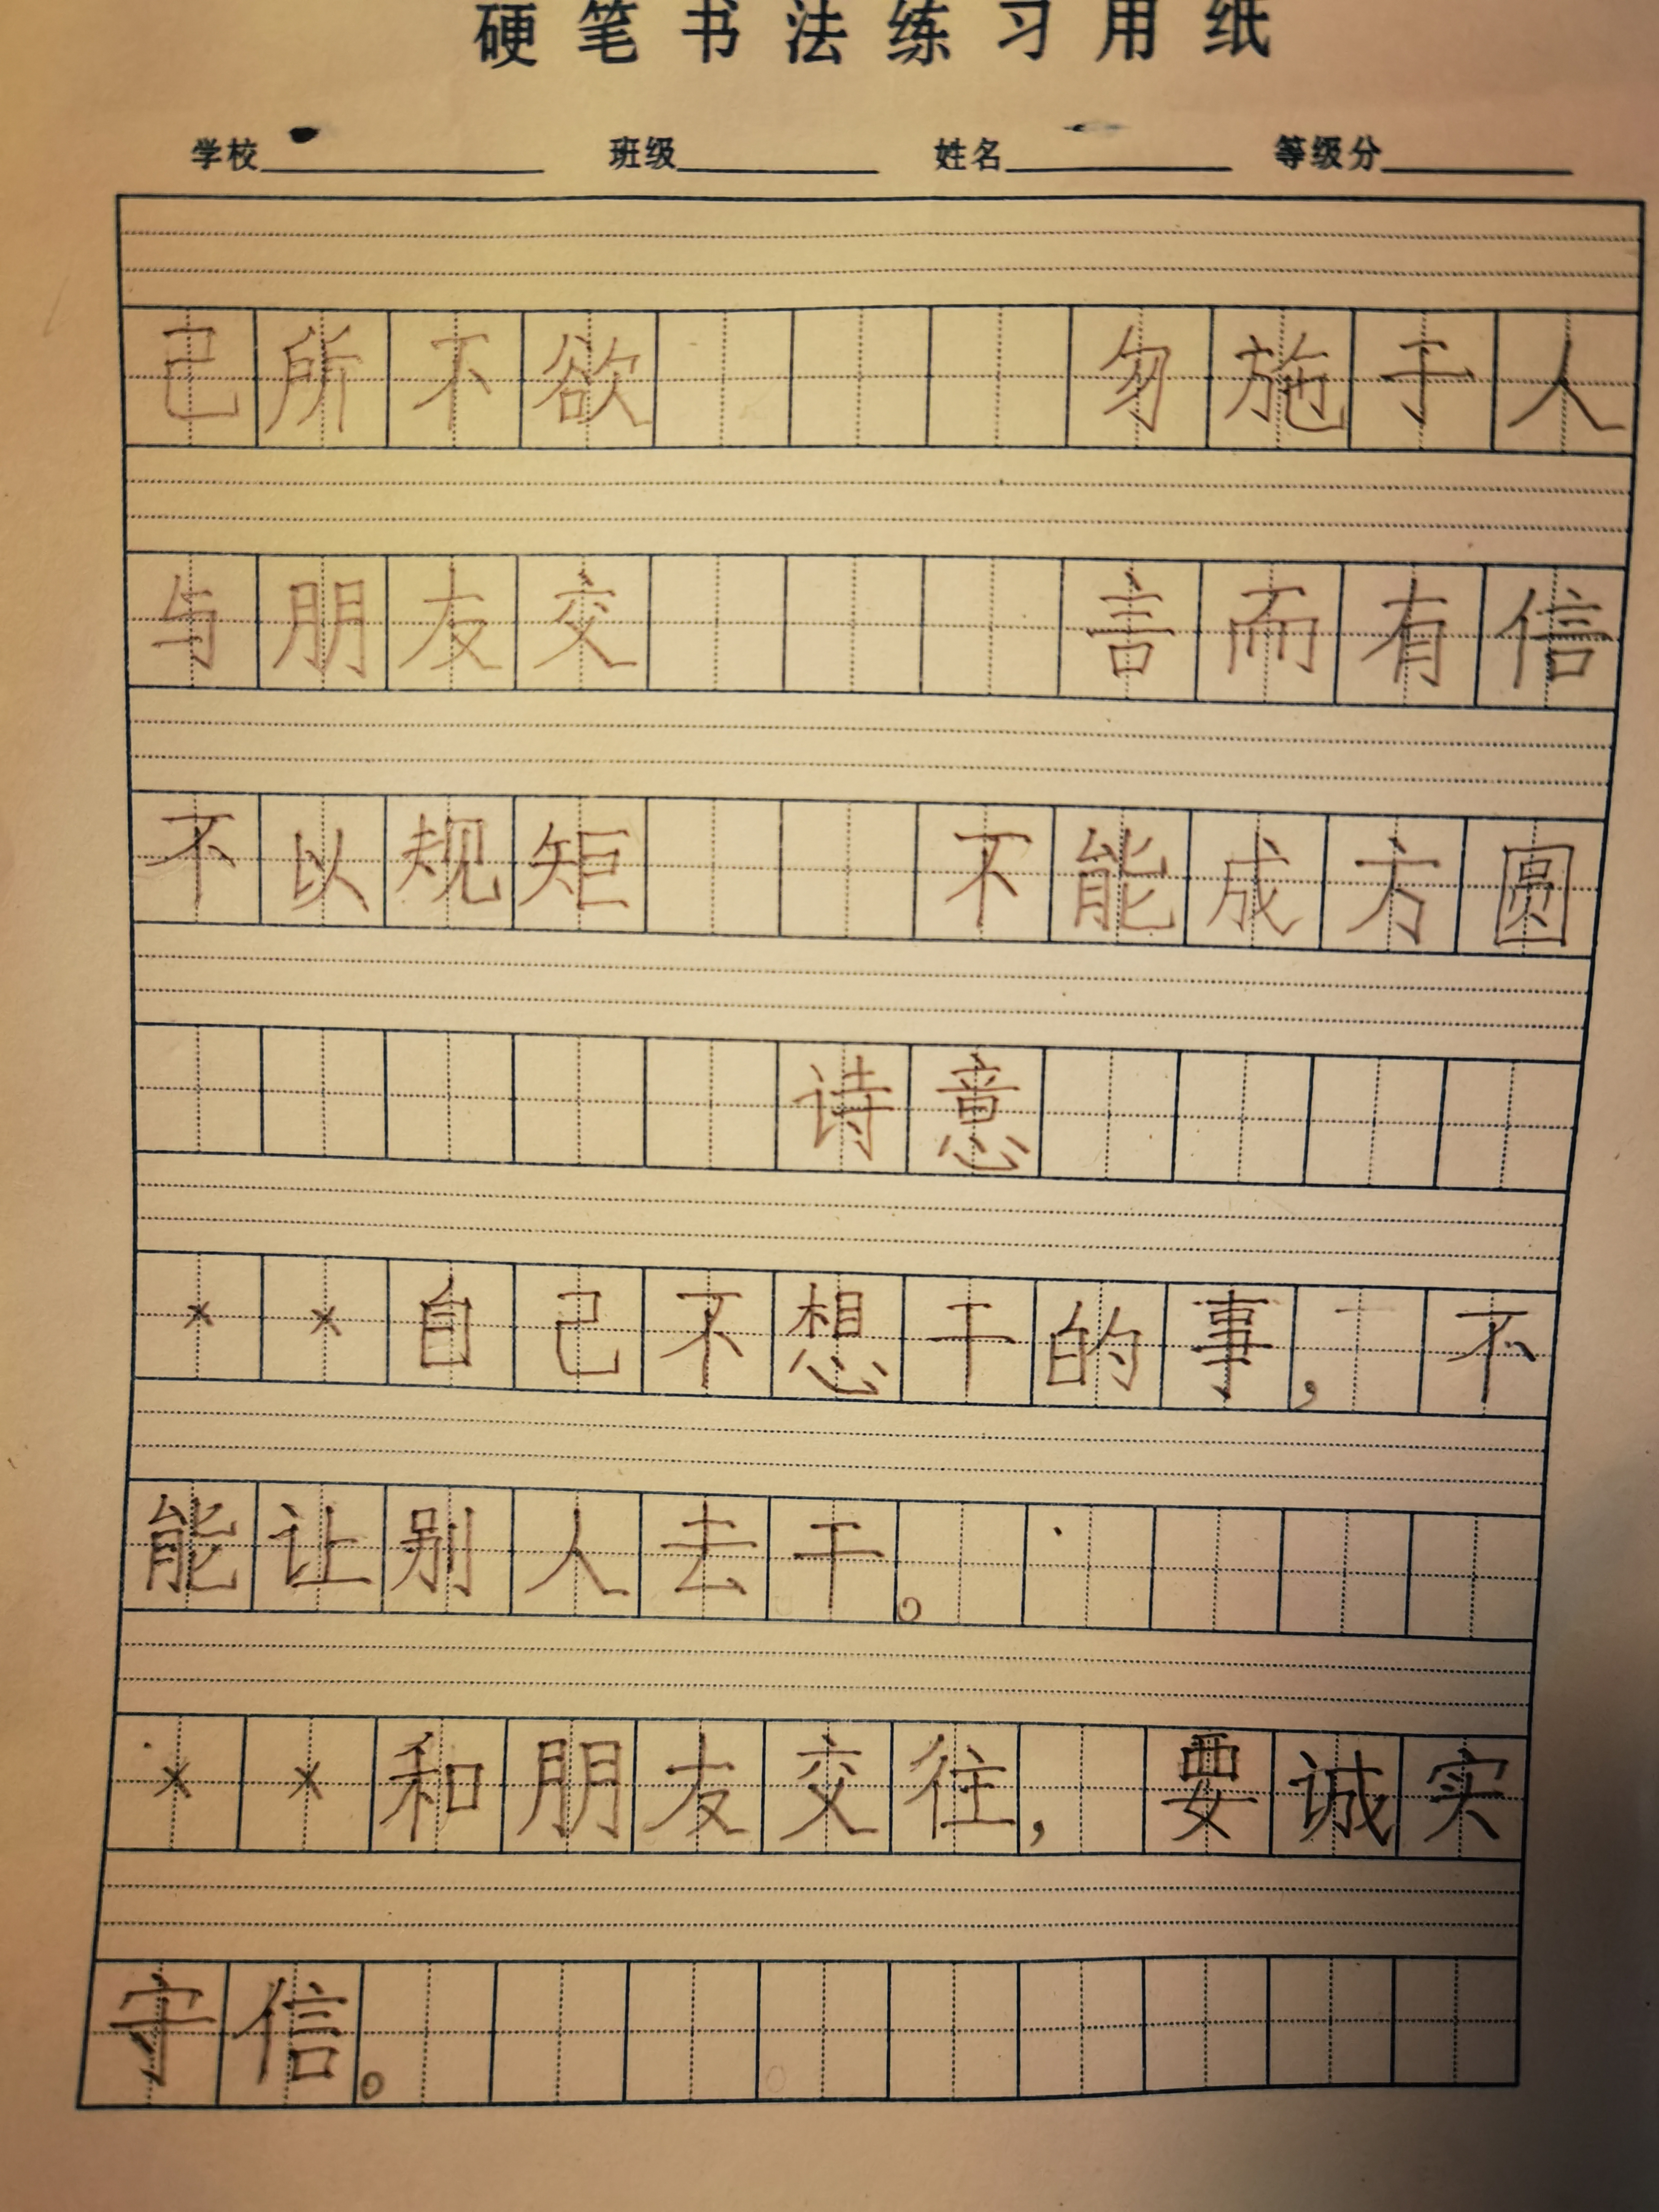 硬笔书法练习用纸
学校 班级 姓名 等级分
己所不欲 勿施于人
与朋友交 言而有信
不以规矩 不能成方圆
诗意
××自己不想干的事，不
能让别人去干。
××和朋友交往，要诚实
守信。